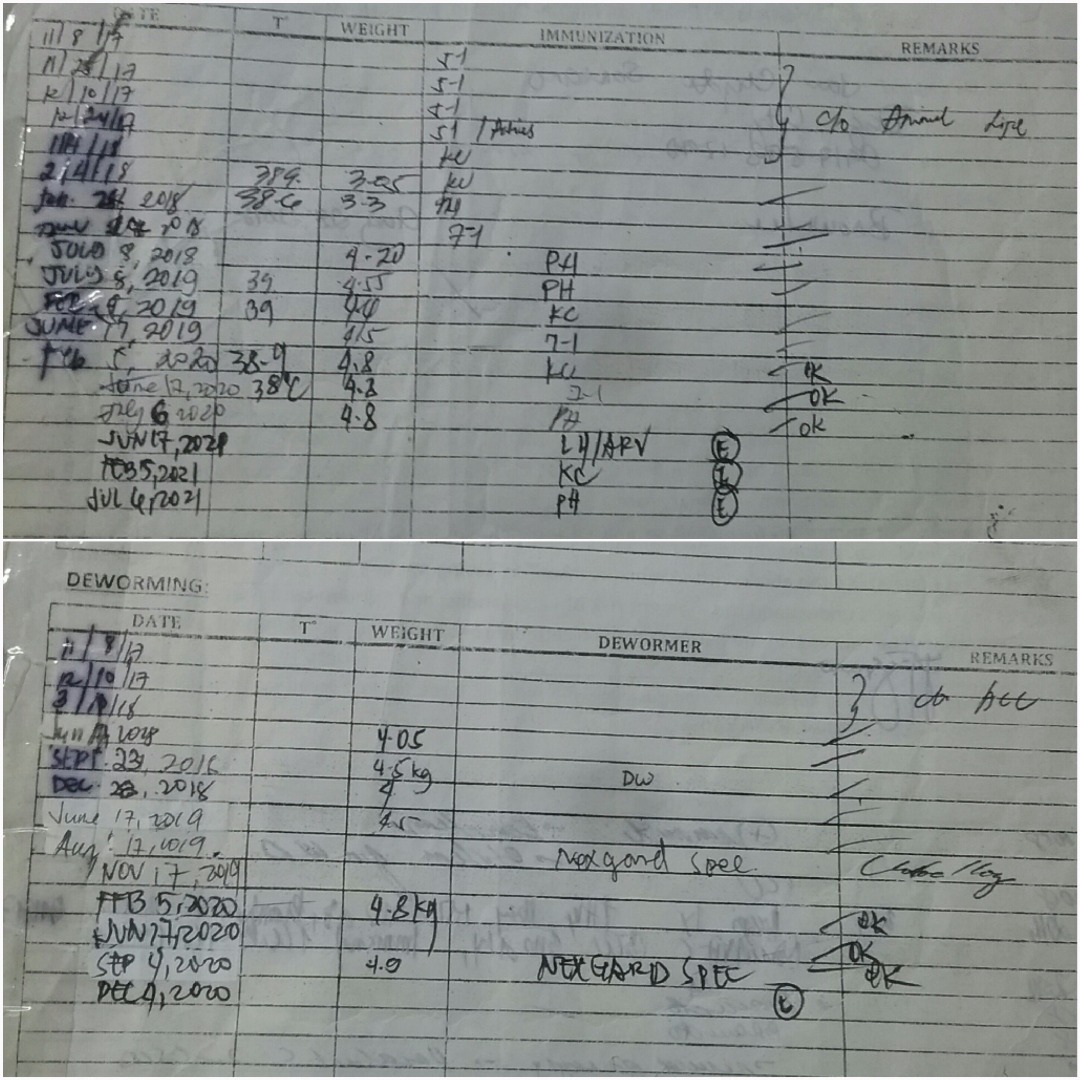 DATE T° WEIGHT IMMUNIZATION REMARKS
11/8/17 5-1
11/ /17 5-1
12/10/17 5-1
12/24/17 5-1 / c/o Animal
KC
2/4/18 389. 3.05 KC
Jan. 2018 38.6 3.3 PH
2018 7-1
8, 2018 4.20 PH
JULY 8, 2019 39 4.55 PH
FEB 2019 39 4.4 KC
JUNE 17, 2019 4.5 7-1
Feb 5, 2020 38.9 4.8 KC OK
June 17, 2020 38°C 4.8 7-1 OK
July 6 2020 4.8 PH OK
JUN 17, 2021 L4/ARV E
FEB 5, 2021 KC E
JUL 6, 2021 PH E
DEWORMING:
DATE T° WEIGHT DEWORMER REMARKS
11/8/17
12/10/17 c/o ACC
3/ /18
Jun 2018 4.05
SEPT. 23, 2018 4.5kg DW
DEC. 2018 4
June 17, 2019 4.5
Aug. 17, 2019. Nexgard Spec.
NOV 17, 2019
FEB 5, 2020 4.8kg OK
JUN 17, 2020 OK
SEP 4, 2020 4.9 NEXGARD SPEC OK
DEC 4, 2020 E